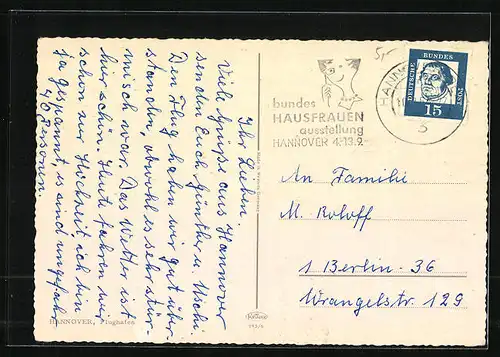 Ihr Lieben.
Viele Grüße aus Hannover
senden Euch Günther u. Uschi.
Den Flug haben wir gut über-
standen, obwohl es sehr stür-
misch war. Das Wetter ist
hier schön. Heute fahren wir
schon zur Hochzeit, ich bin
ja gespannt, es sind ungefähr
40 Personen.
HANNOVER, Flughafen
5,-
bundes
HAUSFRAUEN
ausstellung
HANNOVER 4.-13.9.
HANNOVER
5
DEUTSCHE BUNDES POST
15
An Familie
M. Roloff
1 Berlin - 36
Wrangelstr 129
Krüger